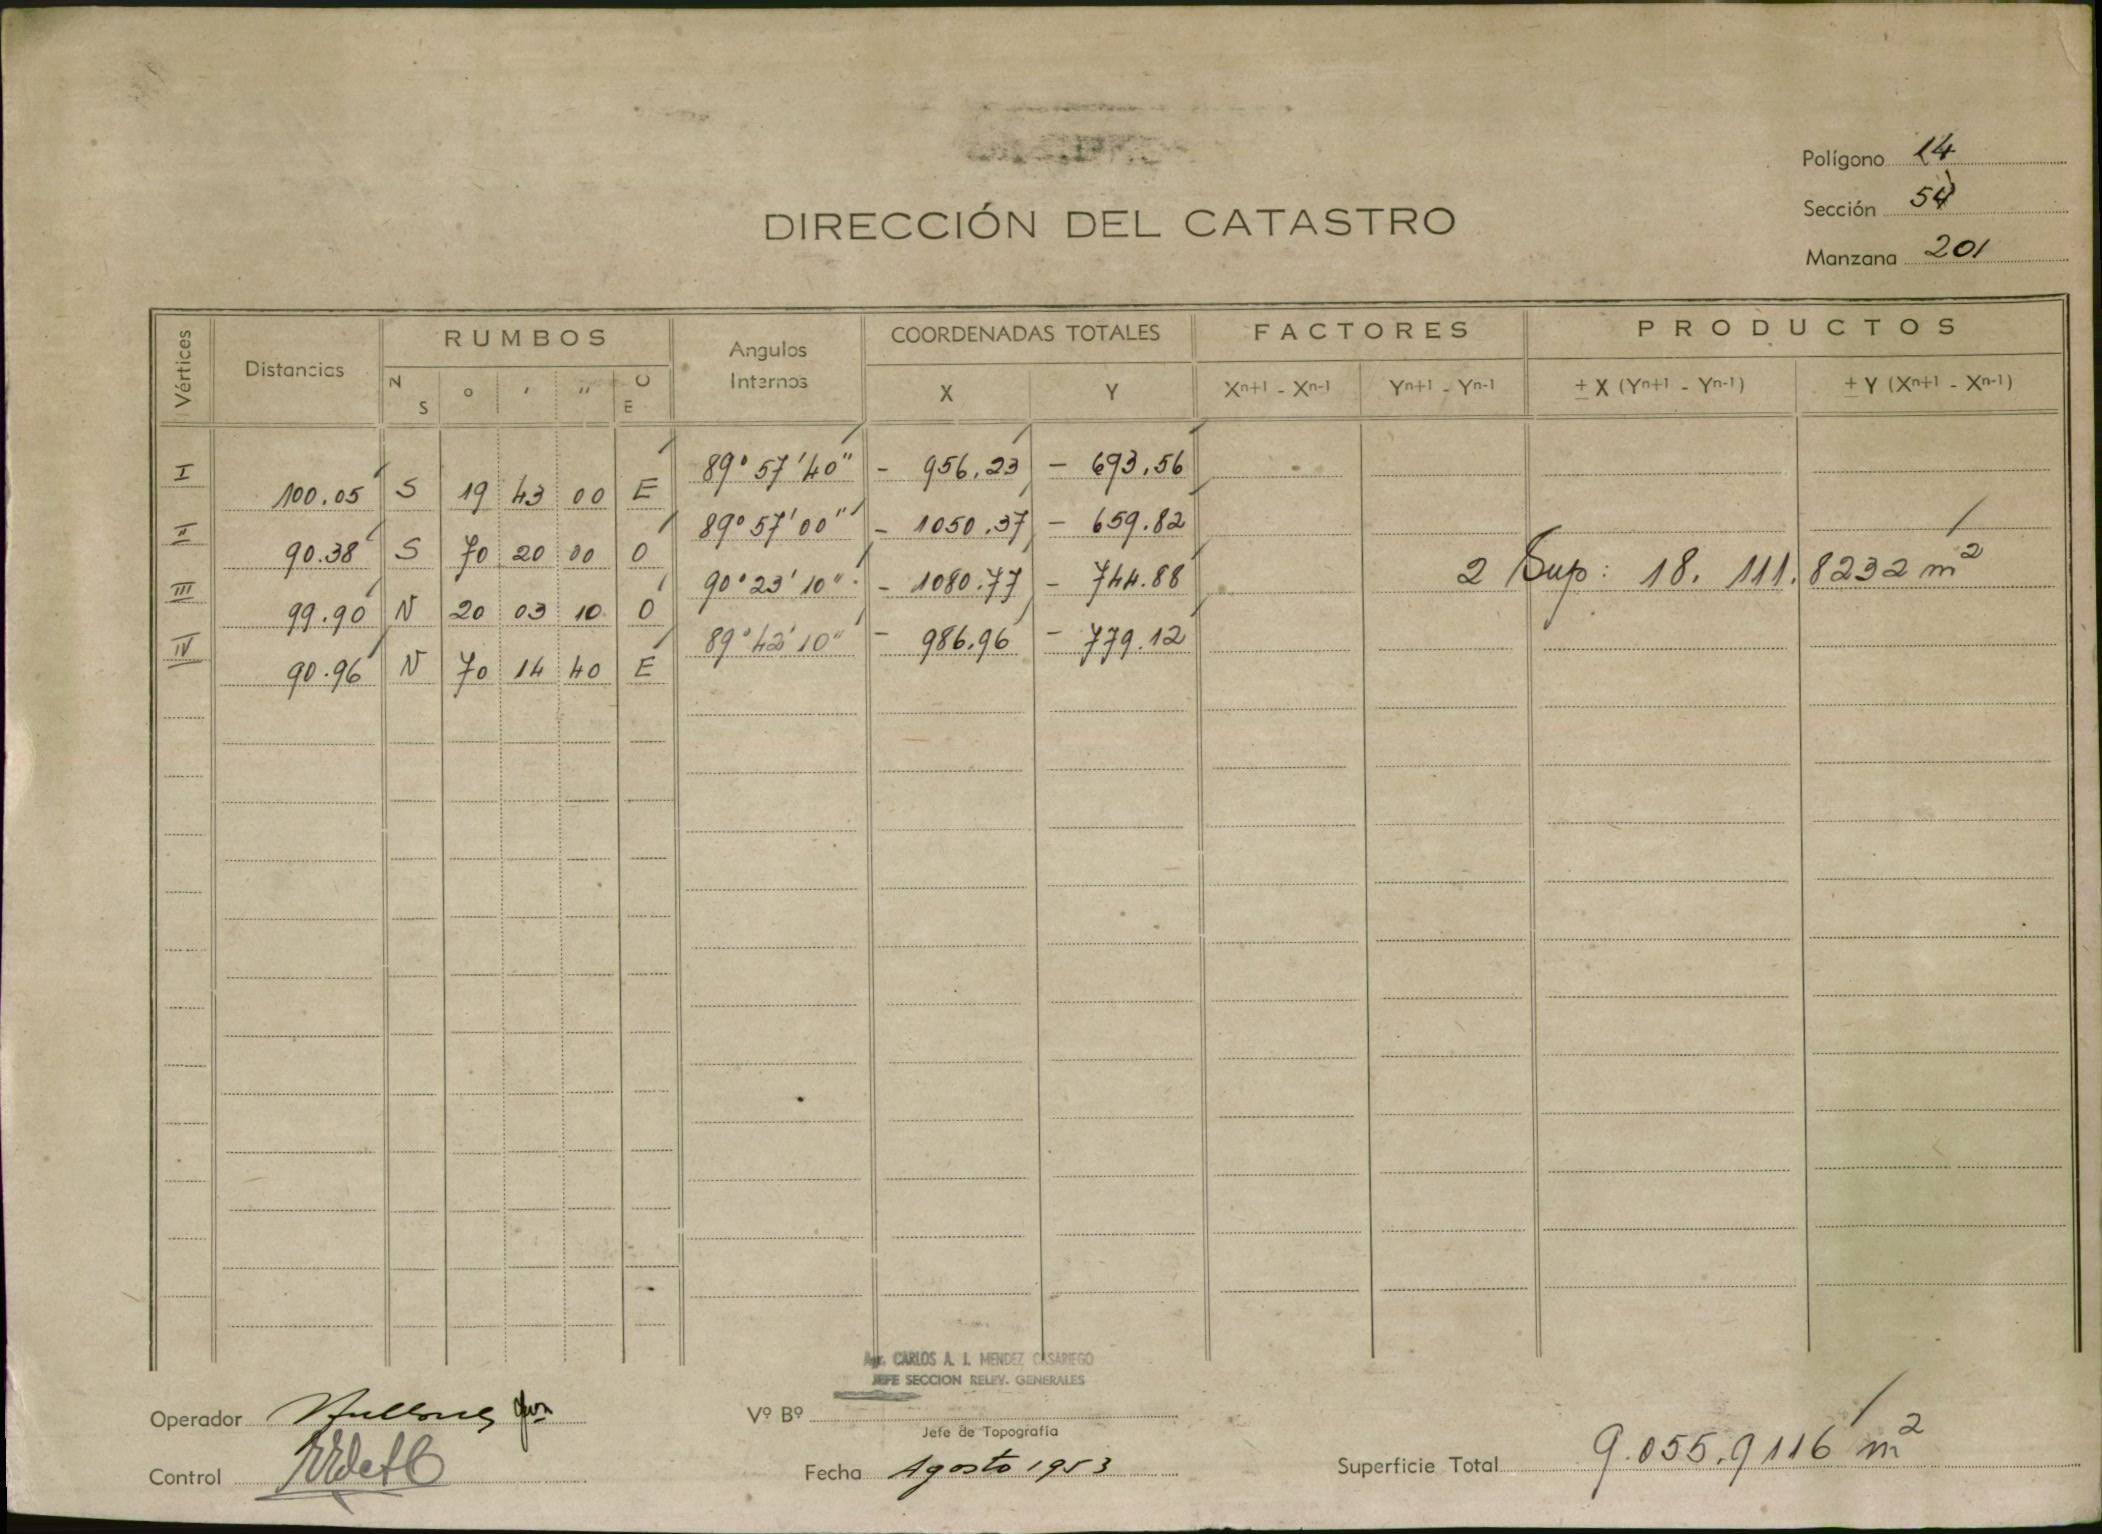 Polígono 14
Sección 54
Manzana 201
DIRECCIÓN DEL CATASTRO
Vértices Distancias RUMBOS Angulos Internos COORDENADAS TOTALES FACTORES PRODUCTOS
N S ° ' " O E X Y Xn+1 - Xn-1 Yn+1 - Yn-1 ± X (Yn+1 - Yn-1) ± Y (Xn+1 - Xn-1)
I 89° 57' 40" - 956.23 - 693.56
100.05 S 19 43 00 E
II 89° 57' 00" - 1050.37 - 659.82
90.38 S 70 20 00 O
III 90° 23' 10" - 1080.77 - 744.88
2 Sup: 18.111.8232 m²
99.90 N 20 03 10 O
IV 89° 42' 10" - 986.96 - 779.12
90.96 N 70 14 40 E
Agr. CARLOS A. I. MENDEZ CASARIEGO
JEFE SECCION RELEV. GENERALES
Operador
Vº Bº
Jefe de Topografía
Control
Fecha Agosto 1953
Superficie Total 9.055.9116 m²